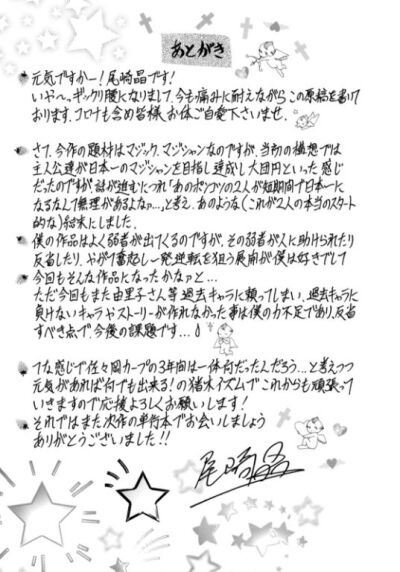 あとがき
元気ですかー！尾崎晶です！
いや～っギックリ腰になりまして、今も痛みに耐えながらこの原稿を書いて
おります。コロナも含め皆様、お体ご自愛下さいませ。
さて、今作の題材はマジック、マジシャンなのですが、当初の構想では
主人公達が日本一のマジシャンを目指し達成し大団円といった感じ
だったのですが、話が進むにつれ「あのポンコツの2人が短期間で日本一に
なるなんて無理があるよなァ…」と考え、あのような(これが2人の本当のスタート
的な)結末にしました。
僕の作品はよく弱者が出てくるのですが、その弱者が人に助けられたり
反省したり、やがて奮起し一発逆転を狙う展開が僕は好きでして
今回もそんな作品になったかなァと…
ただ今回もまた由里子さん等過去キャラに頼ってしまい、過去キャラに
負けないキャラやストーリーが作れなかった事は僕の力不足であり、反省
すべき点で、今後の課題です…
てな感じで佐々岡カープの3年間は一体何だったんだろう…と考えつつ
元気があれば何でも出来る！の猪木イズムでこれからも頑張って
いきますので応援よろしくお願いします！
それではまた次作の単行本でお会いしましょう
ありがとうございました!!
尾崎晶